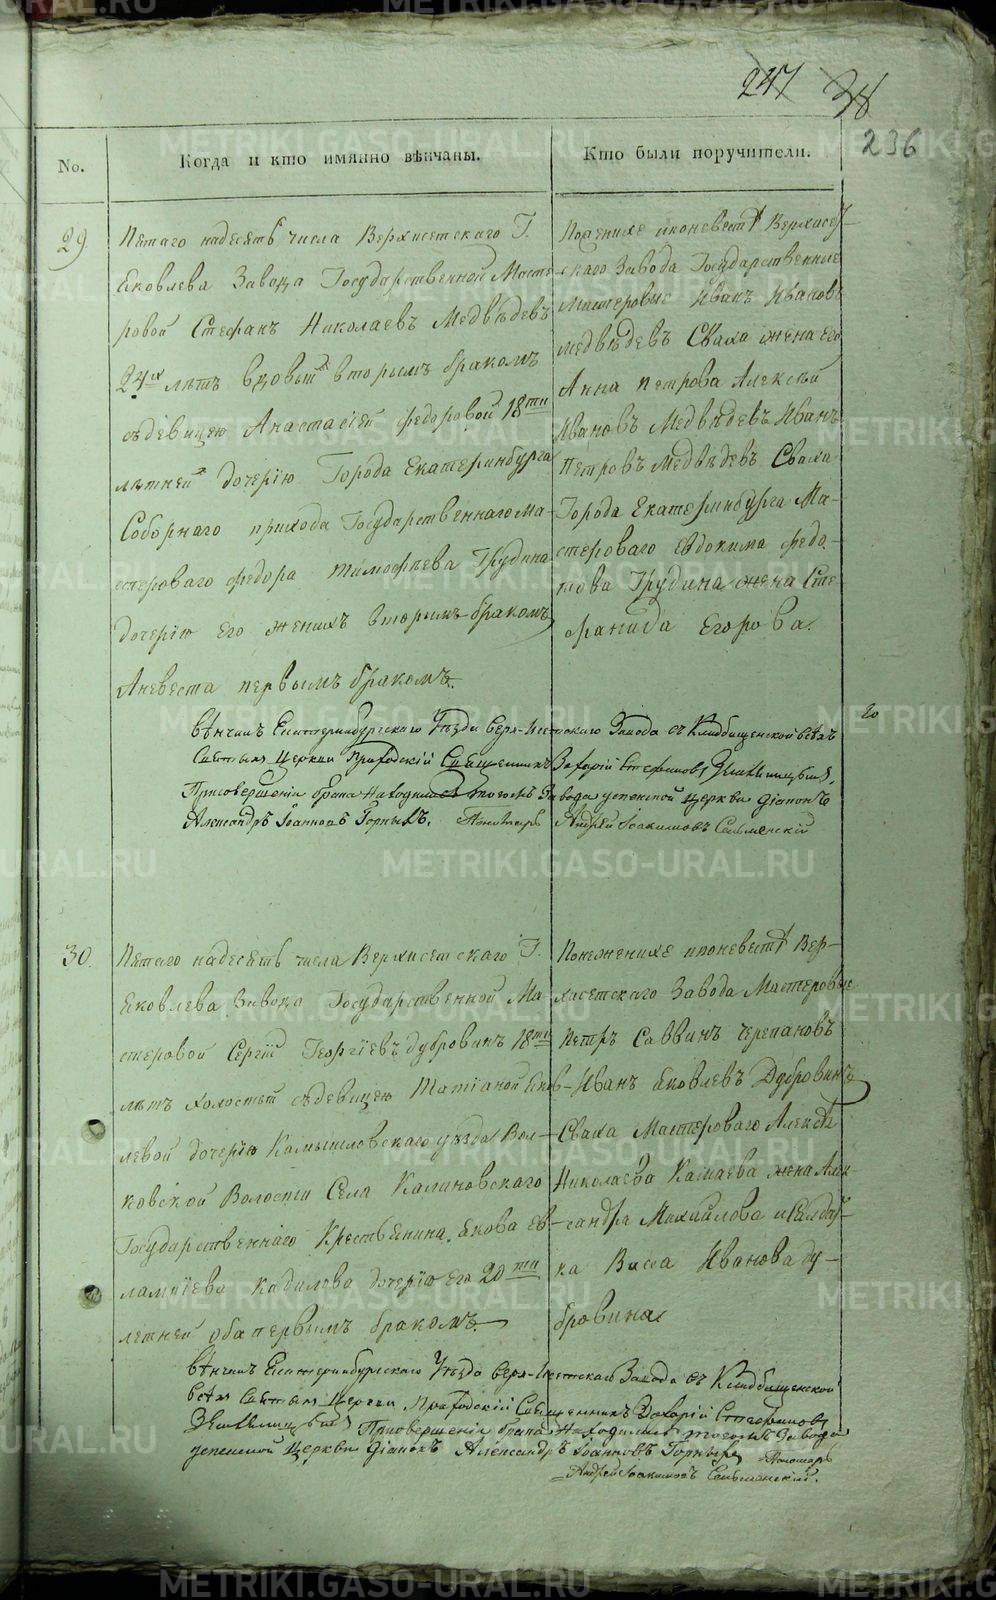 247 38
236
No. Когда и кто имянно вѣнчаны. Кто были поручители.
29
Пятаго надесять числа Верхисетскаго Г.
Яковлева Завода Государственной Масте-
ровой Стефанъ Николаевъ Медвѣдевъ
24хъ лѣтъ вдовый вторымъ бракомъ
съ девицею Анастасіей Федоровой 18ти
лѣтней дочерію Города Екатеринбурга
Соборнаго прихода Государственнаго ма-
стероваго Федора Тимофѣева Трудина
дочерію его жених вторымъ бракомъ
А невеста первымъ бракомъ.
По женихе и по невестѣ Верхисет-
скаго Завода Государственные
Мастеровые Иванъ Ивановъ
Медвѣдевъ Сваха жена его
Анна Петрова Алексѣй
Ивановъ Медвѣдевъ Иванъ
Петровъ Медвѣдевъ Сваха
Города Екатеринбурга Ма-
стероваго Евдокима Федо-
това Трудина жена Сте-
фанида Егорова.
вѣнчалъ Екатеринбургскаго Уѣзда Верх-Исетскаго Завода съ Кладбищенской всѣхъ
Святыхъ Церкви Приходскій Священникъ Захарій Стефановъ
При совершеніи брака находились того жъ Завода успенской церкви діаконъ
Александръ Іоанновъ Горныхъ. Пономарь Андрей Іоакимовъ
30.
Пятаго надесять числа Верхисетскаго Г.
Яковлева Завода Государственной Ма-
стеровой Сергій Георгіевъ Дубровинъ 18ти
лѣтъ холостый съ девицею Татіаной Яков-
левой дочерію Камышловскаго уѣзда Вол-
ковской Волости Села Калиновскаго
Государственнаго Крестьянина Якова Ев-
лампіева Кадилова дочерію его 20ти
летней оба первымъ бракомъ.
По женихе и по невестѣ Вер-
хисетскаго Завода Мастеровые
Петръ Саввинъ Черепановъ
Иванъ Яковлевъ Дубровинъ
Сваха Мастероваго Алексѣя
Николаева Катаева жена Алек-
сандра Михайлова и Салдат-
ка Васа Иванова Ду-
бровина
вѣнчалъ Екатеринбургскаго Уѣзда Верх-Исетскаго Завода съ Кладбищенской
всѣхъ Святыхъ Церкви Приходскій Священникъ Захарій Стефановъ
При совершеніи брака находились того жъ Завода
успенской церкви діаконъ Александръ Іоанновъ Горныхъ Пономарь
Андрей Іоакимовъ
METRIKI.GASO-URAL.RU